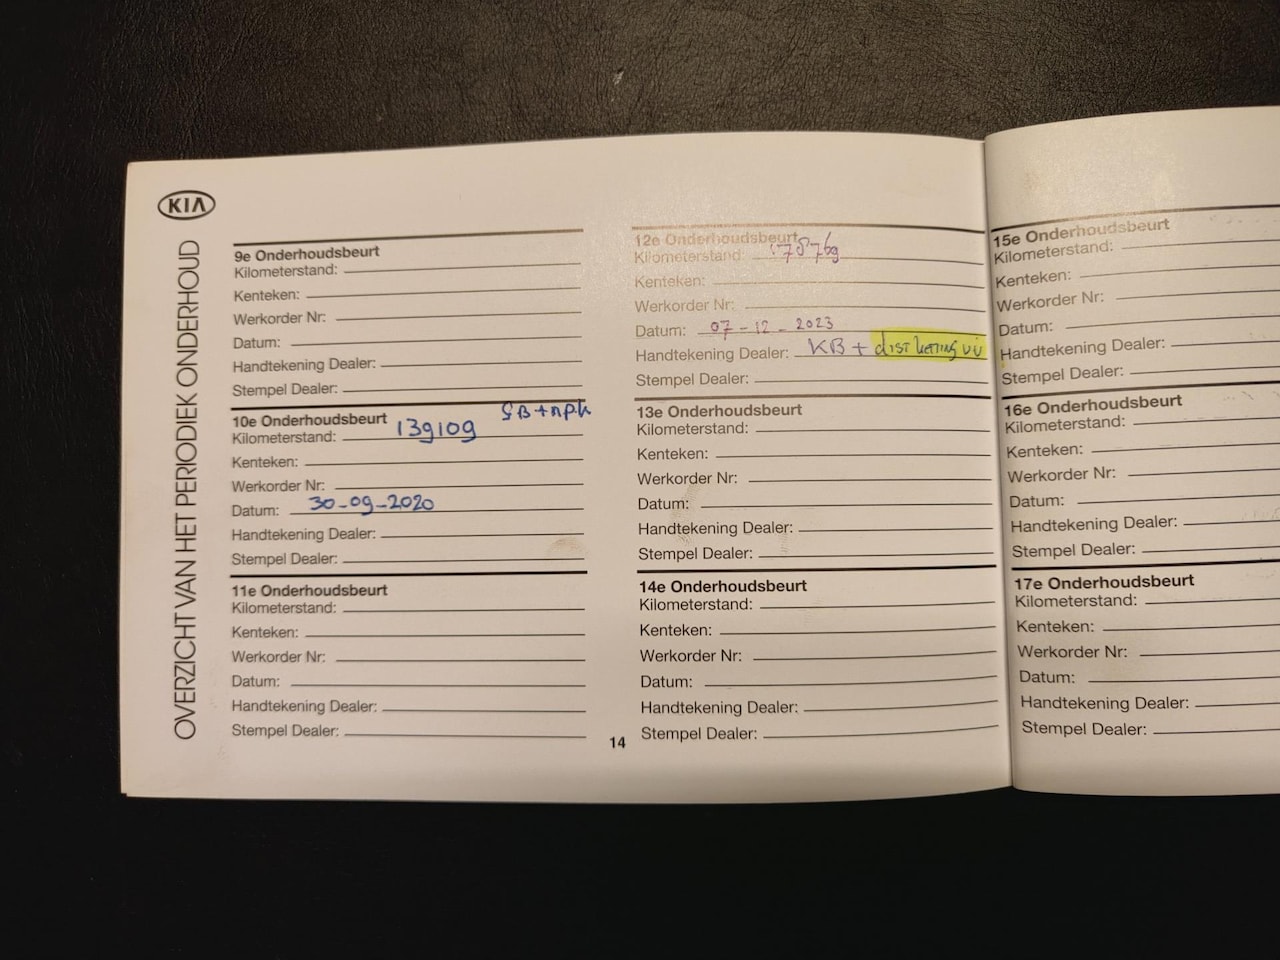 KIA
OVERZICHT VAN HET PERIODIEK ONDERHOUD
9e Onderhoudsbeurt
Kilometerstand:
Kenteken:
Werkorder Nr:
Datum:
Handtekening Dealer:
Stempel Dealer:
10e Onderhoudsbeurt
Kilometerstand: 139109
Kenteken:
Werkorder Nr:
Datum: 30-09-2020
Handtekening Dealer:
Stempel Dealer:
11e Onderhoudsbeurt
Kilometerstand:
Kenteken:
Werkorder Nr:
Datum:
Handtekening Dealer:
Stempel Dealer:
12e Onderhoudsbeurt
Kilometerstand:
Kenteken:
Werkorder Nr:
Datum: 07-12-2023
Handtekening Dealer: KB +
Stempel Dealer:
13e Onderhoudsbeurt
Kilometerstand:
Kenteken:
Werkorder Nr:
Datum:
Handtekening Dealer:
Stempel Dealer:
14e Onderhoudsbeurt
Kilometerstand:
Kenteken:
Werkorder Nr:
Datum:
Handtekening Dealer:
Stempel Dealer:
14
15e Onderhoudsbeurt
Kilometerstand:
Kenteken:
Werkorder Nr:
Datum:
Handtekening Dealer:
Stempel Dealer:
16e Onderhoudsbeurt
Kilometerstand:
Kenteken:
Werkorder Nr:
Datum:
Handtekening Dealer:
Stempel Dealer:
17e Onderhoudsbeurt
Kilometerstand:
Kenteken:
Werkorder Nr:
Datum:
Handtekening Dealer:
Stempel Dealer: